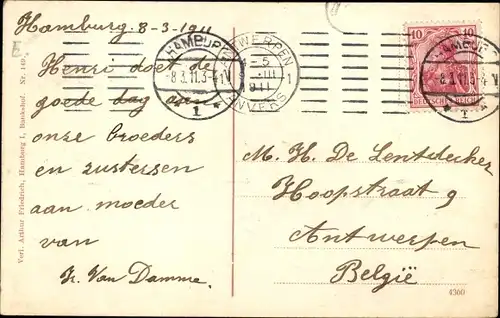 Hamburg. 8-3-1911
Henri doet de
goede dag aan
onze broeders
en zusters en
aan moeder
van
Fr. Van Damme.
HAMBURG
8.3.11.3-4V
1
ANTWERPEN
1 5
III
1911
ANVERS
10 10
DEUTSCHES REICH
HAMBURG
8.3.11.3-4V
1
M. H. De Lentdecker
Hoopstraat 9
Antwerpen
België
Verl. Arthur Friedrich, Hamburg I,
4360